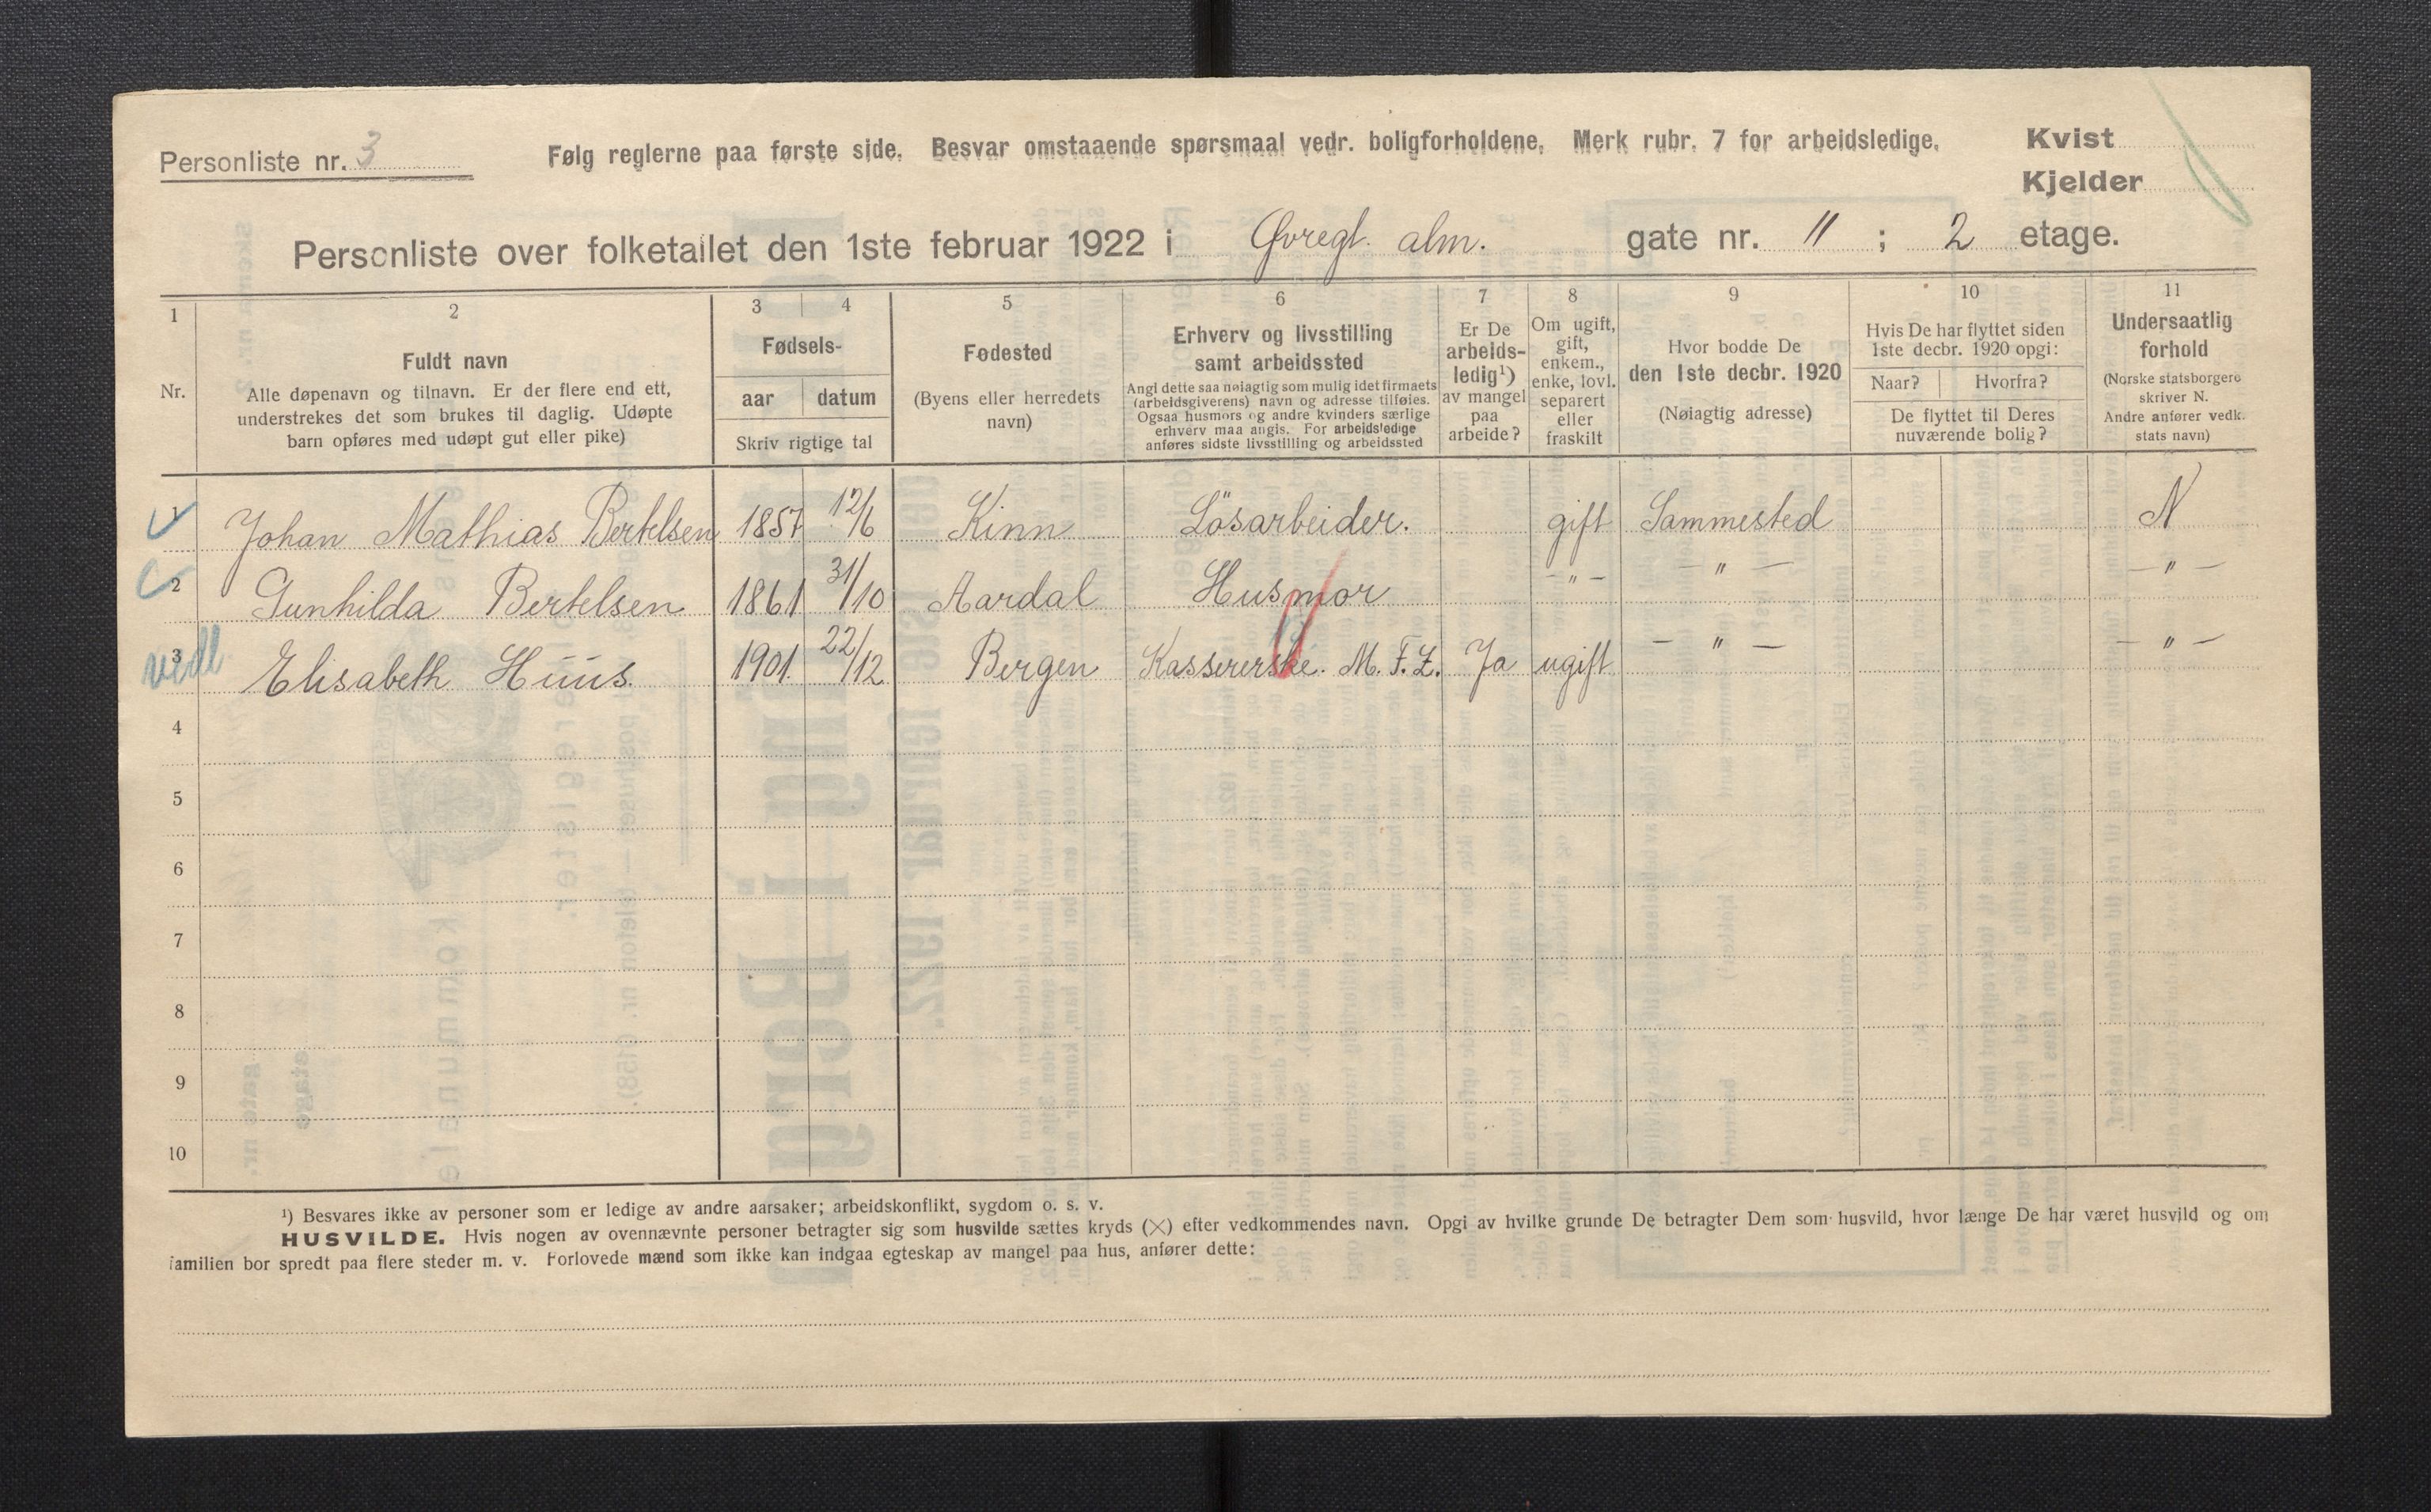 Personliste nr. 3
Følg reglerne paa første side. Besvar omstaaende spørsmaal vedr. boligforholdene. Merk rubr. 7 for arbeidsledige.
Kvist
Kjelder
Personliste over folketallet den 1ste februar 1922 i Øvregt. alm. gate nr. 11 ; 2 etage.
1 2 3 4 5 6 7 8 9 10 11
Nr.
Fuldt navn
Alle døpenavn og tilnavn. Er der flere end ett,
understrekes det som brukes til daglig. Udøpte
barn opføres med udøpt gut eller pike)
Fødsels-
aar datum
Skriv rigtige tal
Fødested
(Byens eller herredets
navn)
Erhverv og livsstilling
samt arbeidssted
Angi dette saa nøiagtig som mulig idet firmaets
(arbeidsgiverens) navn og adresse tilføies.
Ogsaa husmors og andre kvinders særlige
erhverv maa angis. For arbeidsledige
anføres sidste livsstilling og arbeidssted
Er De
arbeids-
ledig¹)
av mangel
paa
arbeide?
Om ugift,
gift,
enkem.,
enke, lovl.
separert
eller
fraskilt
Hvor bodde De
den 1ste decbr. 1920
(Nøiagtig adresse)
Hvis De har flyttet siden
1ste decbr. 1920 opgi:
Naar? Hvorfra?
De flyttet til Deres
nuværende bolig?
Undersaatlig
forhold
(Norske statsborgere
skriver N.
Andre anfører vedk.
stats navn)
1 Johan Mathias Bertelsen 1857 12/6 Kinn Lösarbeider. gift Sammested N
2 Gunhilda Bertelsen 1861 31/10 Aardal Husmor -"- -"- -"-
vedl 3 Elisabeth Huus. 1901. 22/12 Bergen Kassererske. M. F. Z. Ja ugift -"- -"-
4
5
6
7
8
9
10
¹) Besvares ikke av personer som er ledige av andre aarsaker; arbeidskonflikt, sygdom o. s. v.
HUSVILDE. Hvis nogen av ovennævnte personer betragter sig som husvilde sættes kryds (×) efter vedkommendes navn. Opgi av hvilke grunde De betragter Dem som husvild, hvor længe De har været husvild og om
familien bor spredt paa flere steder m. v. Forlovede mænd som ikke kan indgaa egteskap av mangel paa hus, anfører dette: